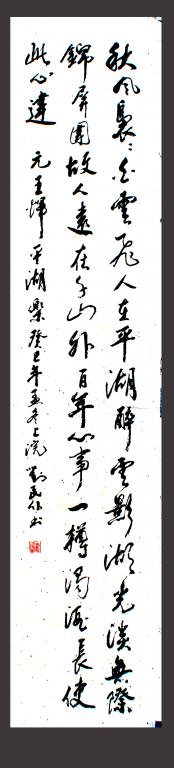 秋风裊〻白雲飞人在平湖醉雲影湖光淡無際
錦屏圍故人遠在千山外百年心事一樽濁酒長使
此心違
元王惲平湖樂癸巳年孟冬上浣劉民书